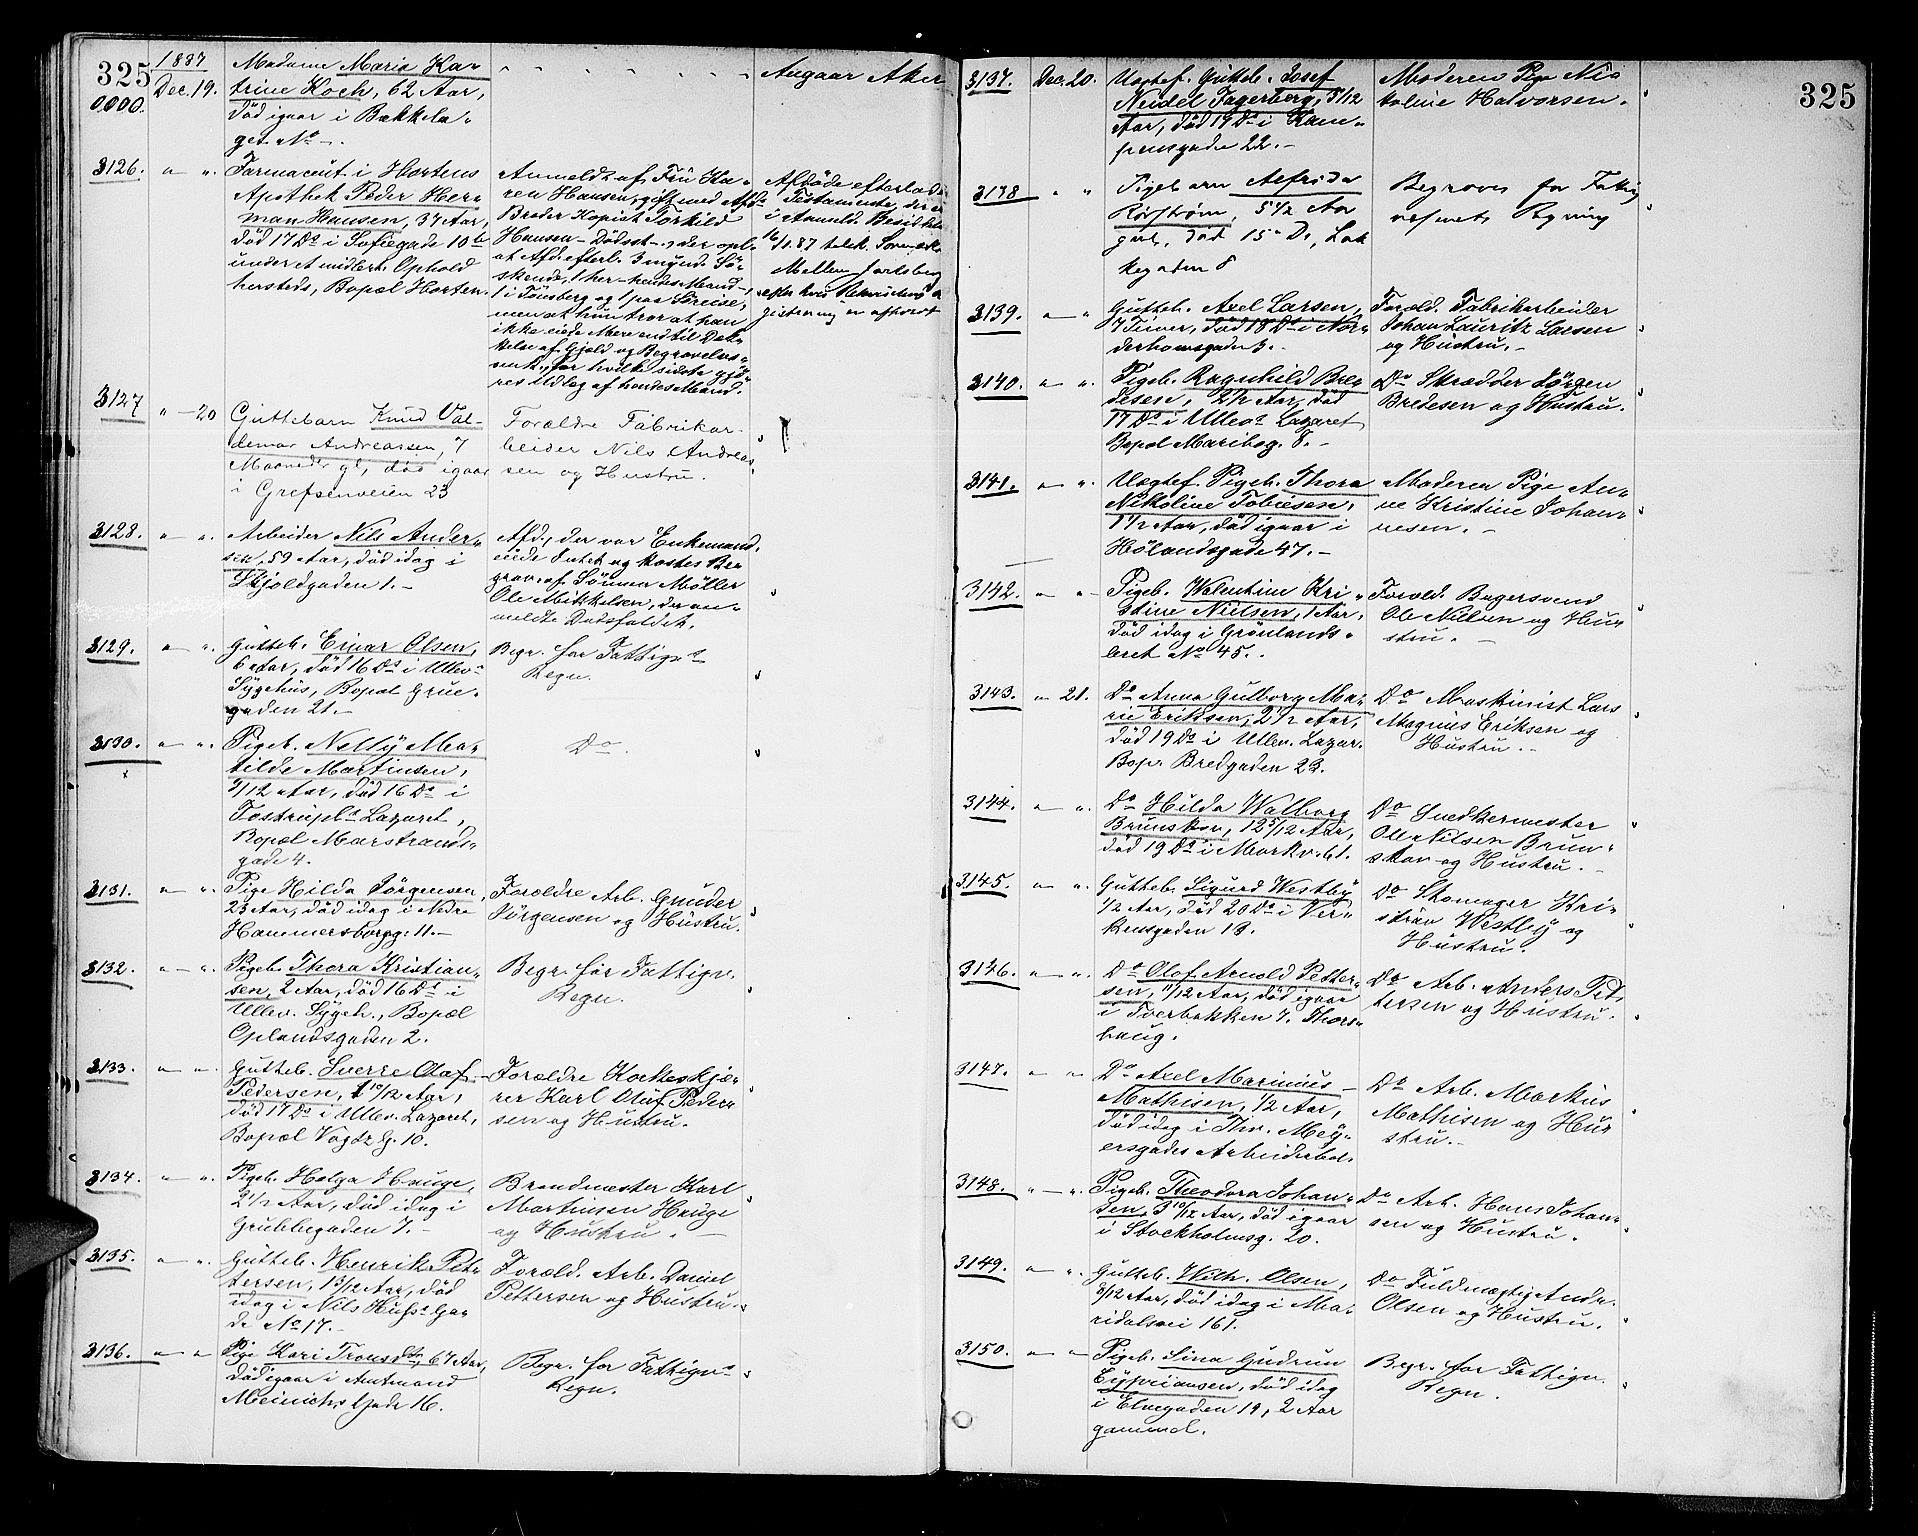 325
1887
0000.
Dec. 19.
Madame Maria Ka-
trine Koch, 62 Aar,
död igaar i Bækkela-
get No -.
Angaar Aker
3126. " ".
Farmaceut i Hortens
Apothek Peder Her-
man Hansen, 37 Aar,
död 17 Do i Sofiegade 10 b
under et midlert. Ophold
hersteds, Bopæl Horten.
Anmeldt af Fru Ka-
ren Hansen, gift med Afd.
Broder Kopist Torkild
Hansen - Dödsat -, der opl.
at Afd. efterl. 3 mynd. Sö-
skende, 1 her - hendes Mand -,
1 i Tönsberg og 1 paa Söreise,
men at hun tror at han
ikke eiede Mere end til Dæk-
kelse af Gjæld og Begravelses-
omk., for hvilke sidste gjö-
res Udlæg af hendes Mand.
Afdöde efterlod
Testamente, der er
i Anmeld. Besiddelse
Mellem Jarlsberg
3127 " - 20
Guttebarn Knud Val-
demar Andreassen, 7
Maaneder gl, död igaar
i Grefsenveien 23
Forældre Fabrikar-
beider Nils Andreas-
sen og Hustru.
3128. " ".
Arbeider Nils Ander-
sen, 59 Aar, död idag i
Skjoldgaden 1. -
Afd., der var Enkemand,
eiede Intet og kostes Be-
grav. af Sönnen Möller
Ole Mikkelsen, der an-
meldte Dödsfaldet.
3129. " ".
Gutteb. Einar Olsen,
6 Aar, död 16 Do i Ullev.
Sygehus, Bopæl Grue-
gaden 21. -
Begr. for Fattigv.
Regn.
3130. " ".
Pigeb. Nelly Ma-
tilde Martinsen,
7/12 Aar, död 16 Do i
Tostrups Lazaret,
Bopæl Marstrands-
gade 4.
Do.
3131. " ".
Pige Hilda Jörgensen,
23 Aar, död idag i Nedre
Hammersborgg. 11. -
Forældre Arb. Gunder
Jörgensen og Hustru.
3132. " ".
Pigeb. Thora Kristian-
sen, 2 Aar, död 16 Do i
Ullev. Sygeh., Bopæl
Oplandsgaden 2.
Begr. for Fattigv.
Regn.
3133. " ".
Gutteb. Sverre Olaf
Pedersen, 1 10/12 Aar,
död 17 Do i Ullev. Lazaret,
Bopæl Vogts G. 10.
Forældre Korkeskjæ-
rer Karl Oluf Peder-
sen og Hustru.
3134. " ".
Pigeb. Helga Hauge,
2 1/2 Aar, död idag i
Grubbegaden 7. -
Brandmester Karl
Martinsen Hauge
og Hustru. -
3135. " ".
Gutteb. Henrik Pet-
tersen, 1 3/12 Aar, död
idag i Nils Huhs Ga-
de No 17. -
Foræld. Arb. Daniel
Pettersen og Hustru.
3136. " "
Pige Kari Tronsdtr, 67 Aar,
död igaar i Amtmand
Meinichs Gade 16.
Begr. for Fattigvs
Regn.
325
3137. Dec. 20.
Uægtef. Gutteb. Josef
Neidel Fagerberg, 5/12
Aar, död 19 Do i Kam-
pensgade 22. -
Moderen Pige Nic
koline Halvorsen.
3138 " "
Pigebarn Alfrida
Körström, 5 1/2 Aar
gml, död 15 De, Lak
kegaden 8
Begraves for Fattig
væsenets Regning
3139. " ".
Gutteb. Axel Larsen,
7 Timer, död 18 Do i Nor-
derhovsgade 3. -
Foræld. Fabrikarbeider
Johan Lauritz Larsen
og Hustru. -
3140. " ".
Pigeb. Ragnhild Bre-
desen, 2 1/2 Aar, död
17 Do i Ullevs Lazaret,
Bopæl Maribog. 8. -
Do Skrædder Jörgen
Bredesen og Hustru.
3141. " ".
Uægtef. Pigeb. Thora
Nikoline Tobiesen,
1 1/2 Aar, död igaar i
Hölandsgade 47. -
Moderen Pige An-
ne Kristine Johan-
nesen. -
3142. " "
Pigeb. Valentine Kri-
stine Nielsen, 1 Aar,
död idag i Grönlands-
leret No 45. -
Foræld. Bagersvend
Ole Nilsen og Hu-
stru. -
3143. " 21.
Do Anna Gulborg Ma-
rie Eriksen, 2 1/2 Aar,
död 19 Do i Ullev. Lazar.
Bopæl Bredgaden 23.
Do Maskinist Lars
Magnus Eriksen og
Hustru. -
3144. " ".
Do Hilda Walborg
Brunskov, 12 5/12 Aar,
död 19 Do i Markv. 61.
Do Snedkermester
Ole Nilsen Brun-
skov og Hustru. -
3145. " ".
Gutteb. Sigurd Westby
1/2 Aar, död 20 Do i Ver-
kensgaden 18.
Do Skomager Kri-
stian Westby og
Hustru.
3146. " ".
Do Olaf Arnold Petter-
sen, 11/12 Aar, död igaar
i Tverbakken 7. Thors-
haug.
Do Arb. Anders Pet-
tersen og Hustru.
3147. " "
Do Axel Marinius
Mathisen, 1/2 Aar,
död idag i Thv. Mey-
ersgades Arbeiderbol.
Do Arb. Markus
Mathisen og Hu-
stru. -
3148. " ".
Pigeb. Theodora Johan-
sen, 3 10/12 Aar, död igaar
i Stockholmsg. 20.
Do Arb. Hans Johan-
sen og Hustru.
3149. " ".
Gutteb. Wilh. Olsen,
8/12 Aar, död idag i Ma-
ridalsvei 161.
Do Fuldmægtig Andr.
Olsen og Hustru.
3150. " "
Pigeb. Lina Gudrun
Cypriansen, död idag
i Elvegaden 19, 2 Aar
gammel.
Begr. for Fattigv.
Regn.